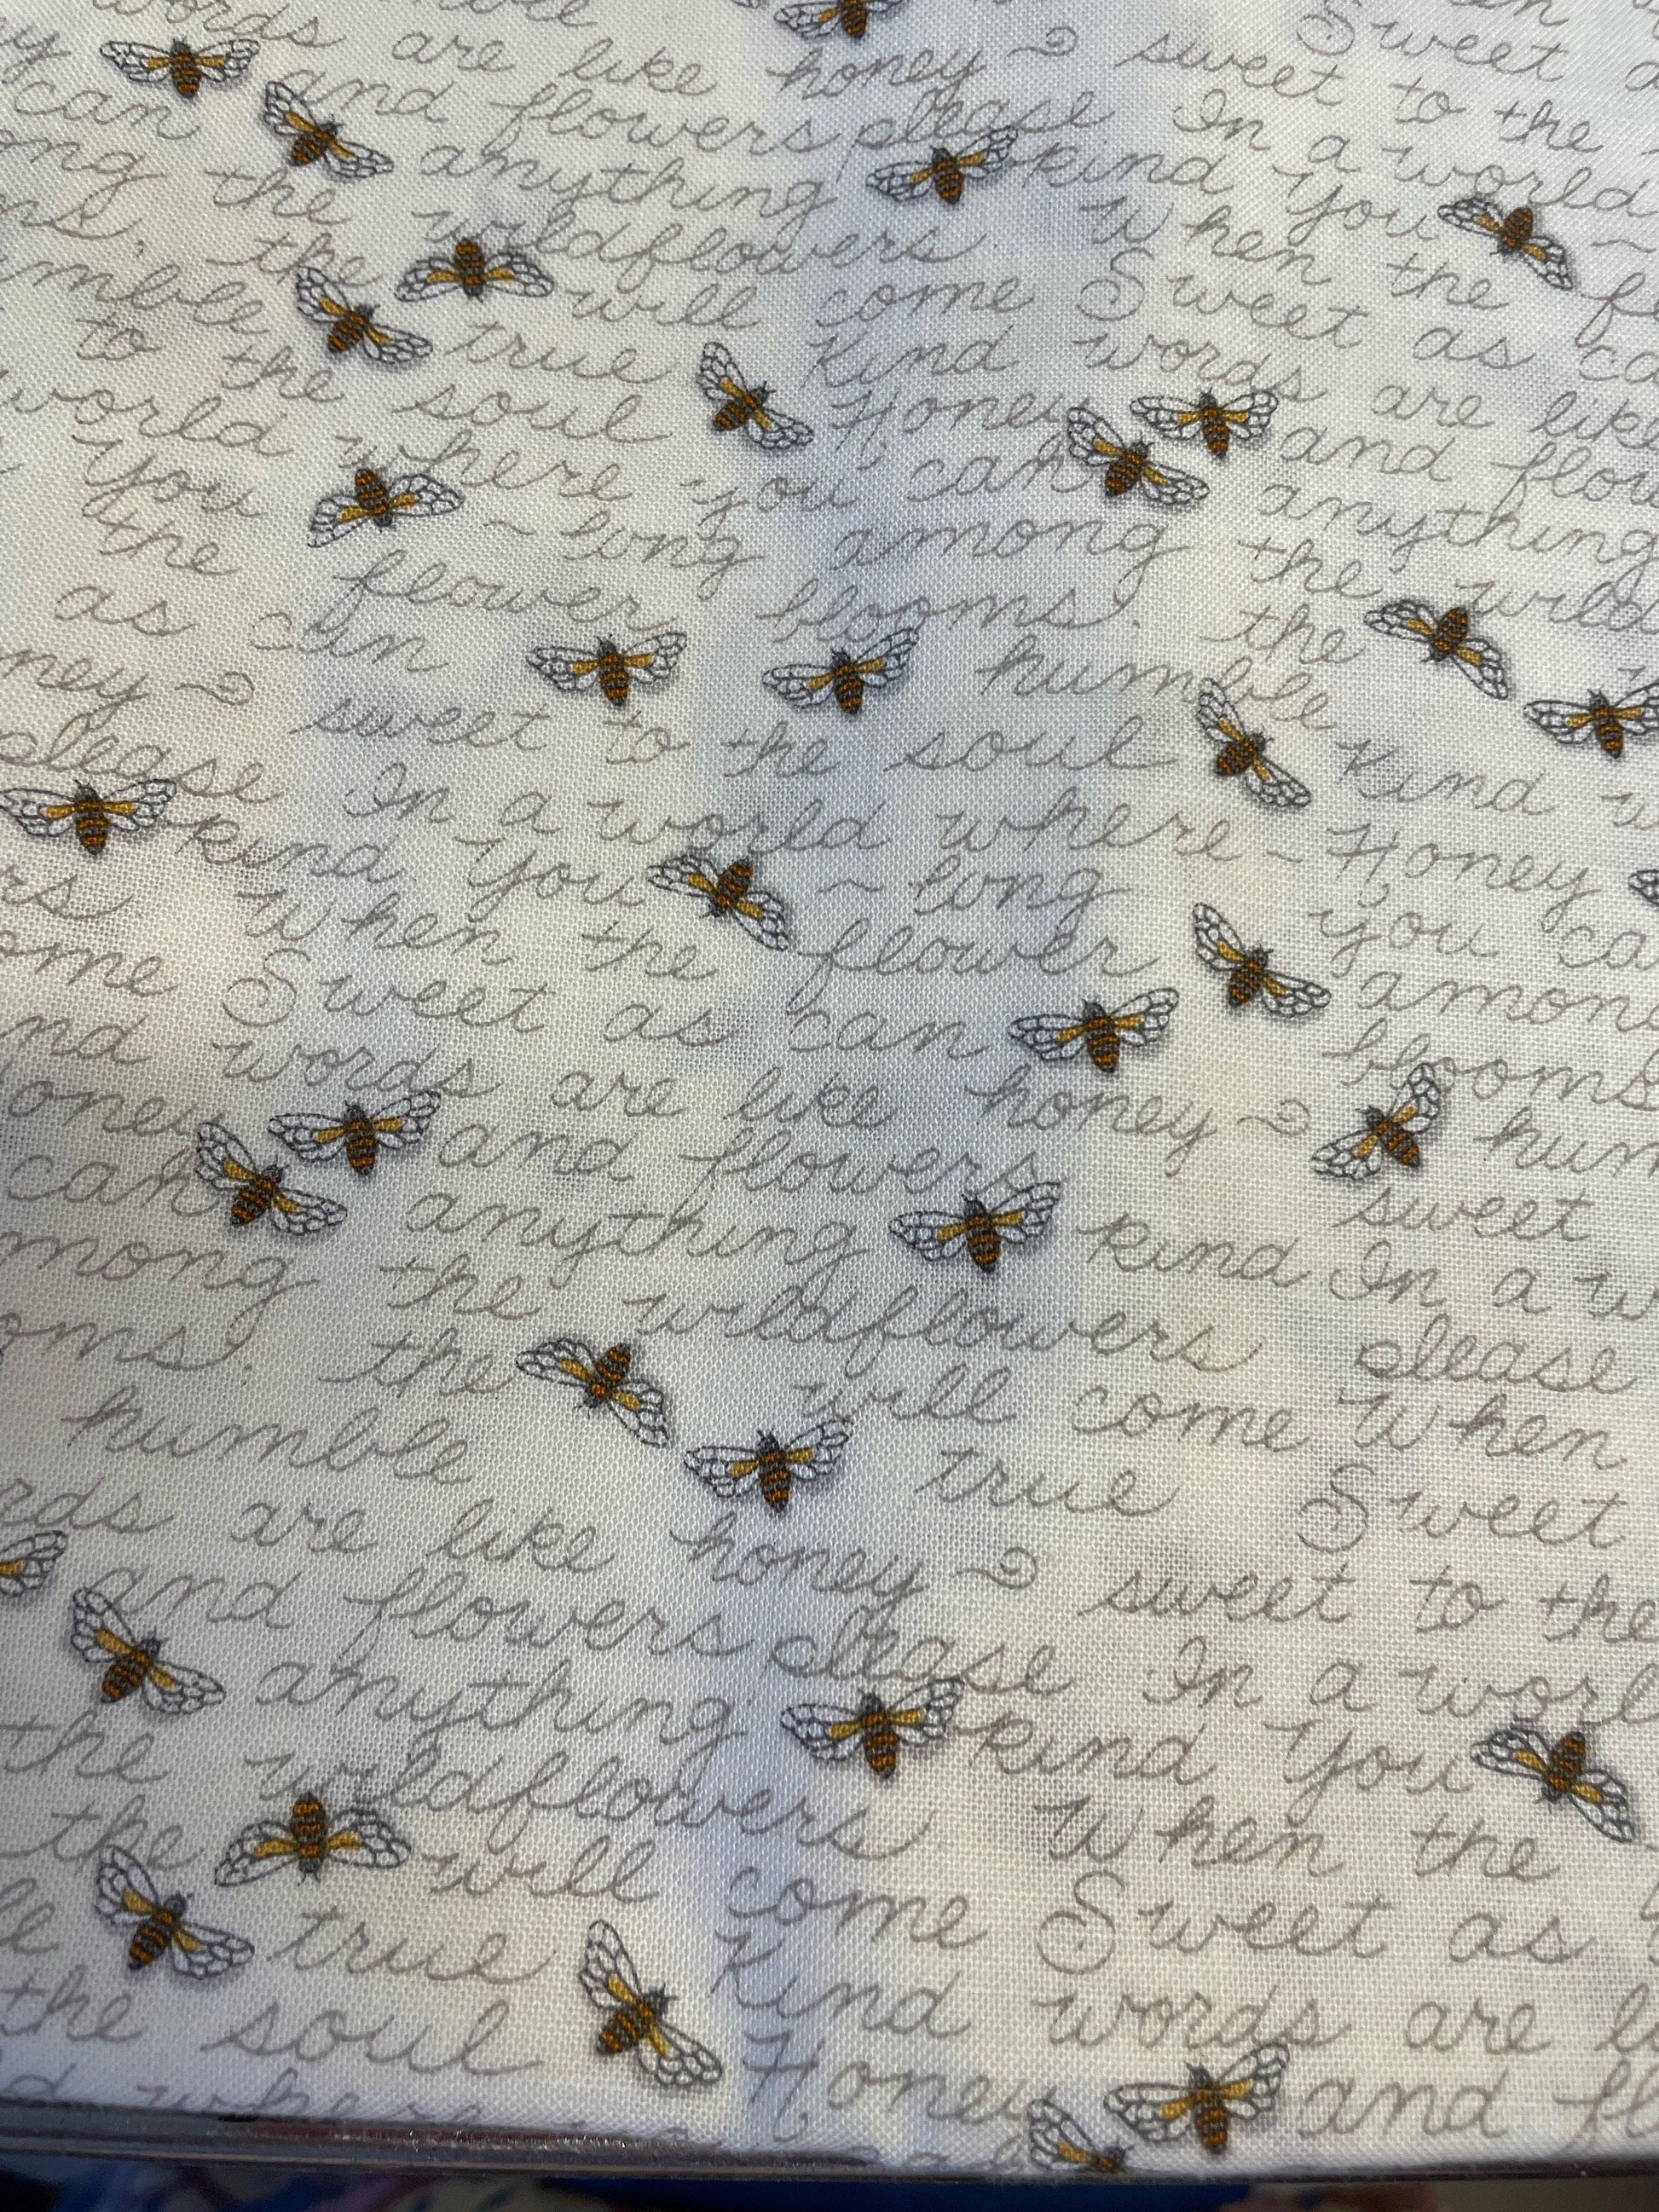 words are like honey sweet to the
can and flowers please In a world
the anything kind You
the wildflowers When the
will come Sweet as
to the true Kind words are like
world the soul Honey and
where you can anything
You ~ long among the
the flower blooms. the
as can humble Kind
sweet to the soul Honey
please In a world where ~ you
kind You ~ long
When the flower blooms
Sweet as can
words are like honey
can and flowers sweet
anything kind In a
the wildflowers please
the will come When
humble true Sweet
are like honey sweet to the
and flowers please In a
the anything kind You
the wildflowers When the
will come Sweet as
the true Kind words are
soul Honey and